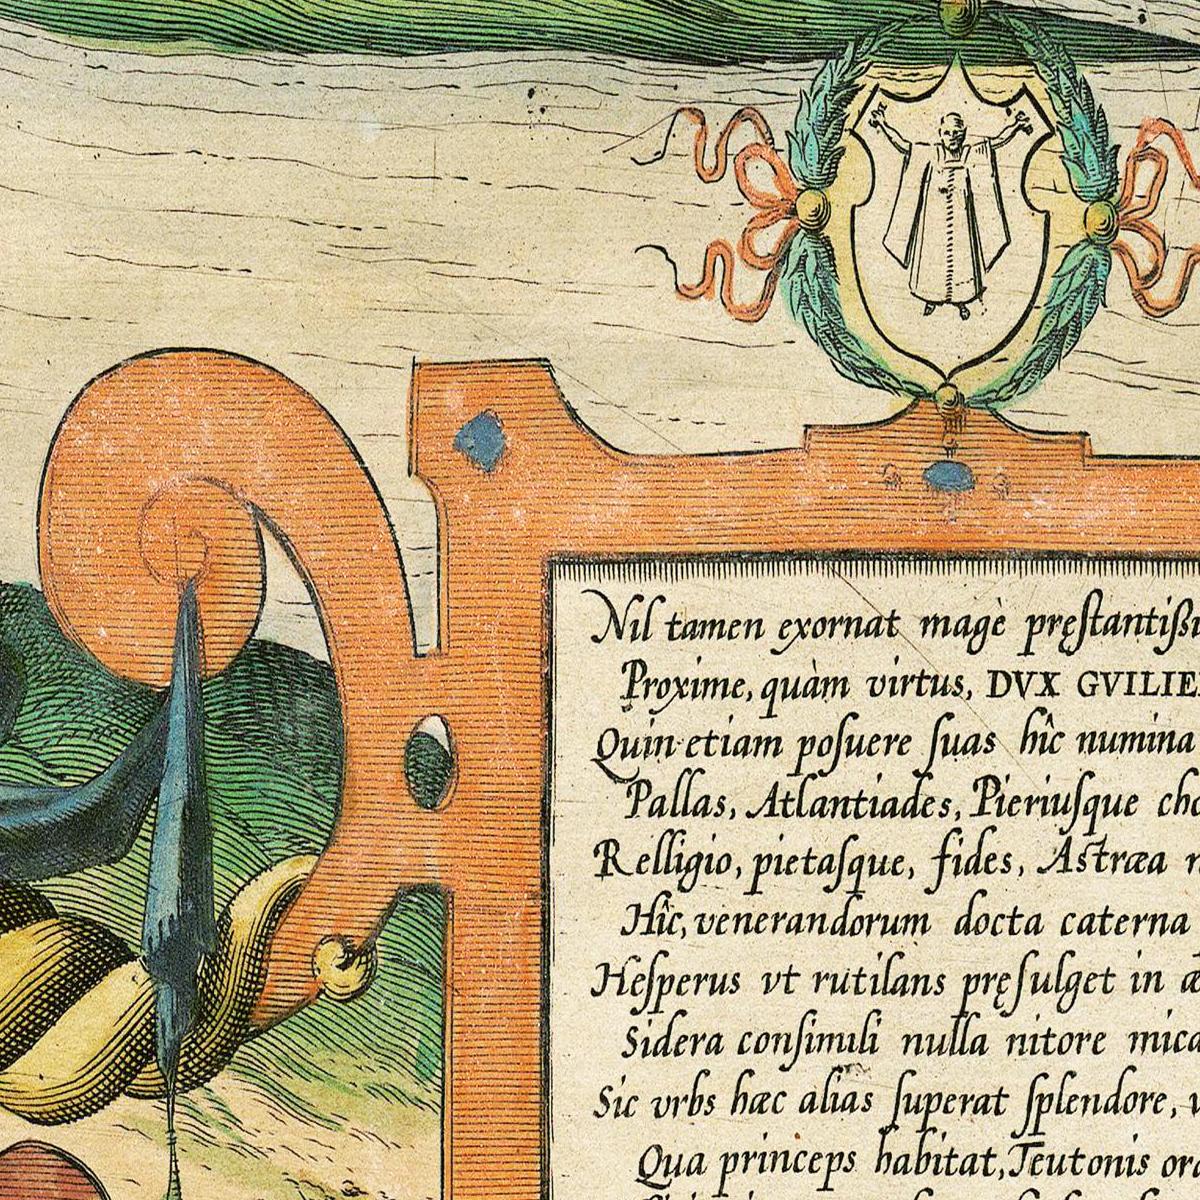 Nil tamen exornat magè pręſtantißi
Proxime, quàm virtus, DVX GVILIE
Quin etiam poſuere ſuas hîc numina
Pallas, Atlantiades, Pieriuſque cho
Relligio, pietaſque, fides, Astræa n
Hîc, venerandorum docta caterna
Heſperus vt rutilans pręſulget in æ
Sidera conſimili nulla nitore mica
Sic vrbs hæc alias ſuperat ſplendore, v
Qua princeps habitat, Teutonis ora